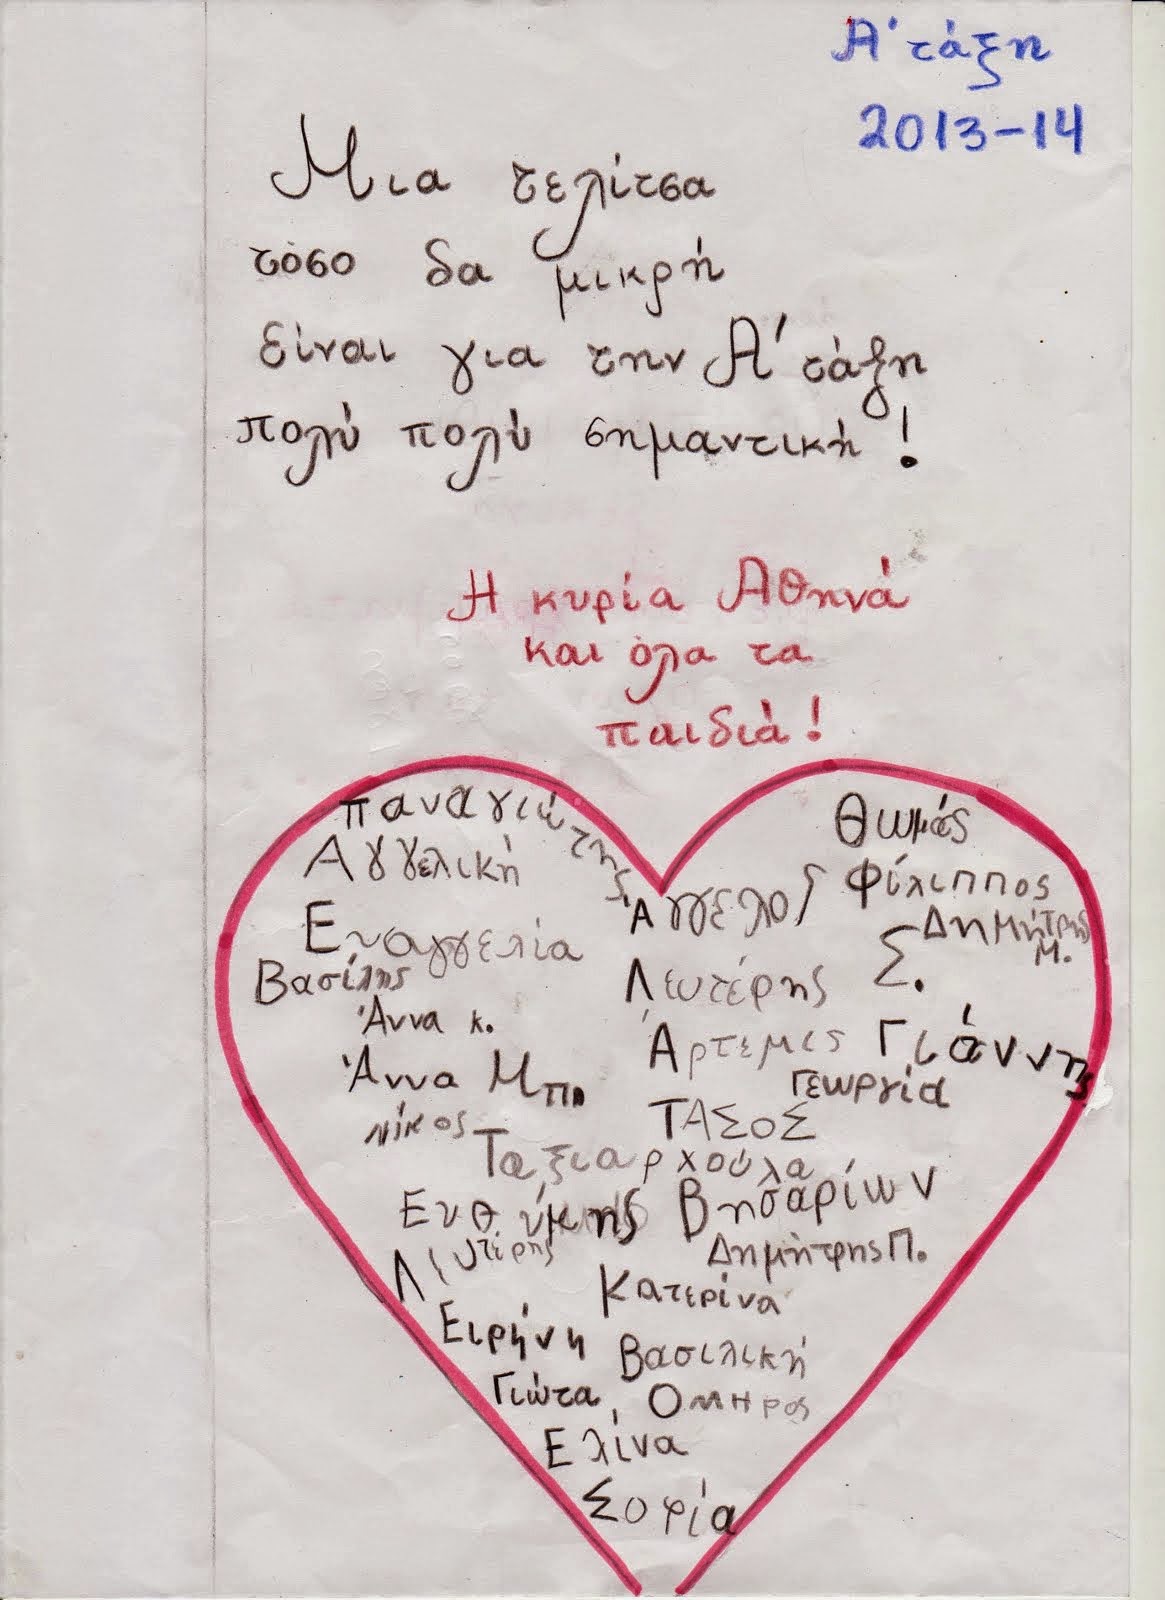 Α' τάξη
2013-14
Μια τελίτσα
τόσο δα μικρή
είναι για την Α' τάξη
πολύ πολύ σημαντική!
Η κυρία Αθηνά
και όλα τα
παιδιά!
Παναγιώτης
Θωμάς
Αγγελική
Άγγελος
Φίλιππος
Ευαγγελία
Δημήτρης
Μ.
Σ.
Βασίλης
Λευτέρης
Άννα κ.
Άρτεμις
Γιάννης
Άννα Μπ
Γεωργία
Νίκος
ΤΑΣΟΣ
Ταξιαρχούλα
Ευθύμης
Βησαρίων
Λευτέρης
Δημήτρης Π.
Κατερίνα
Ειρήνη
Βασιλική
Γιώτα
Ομηρος
Ελίνα
Σοφία